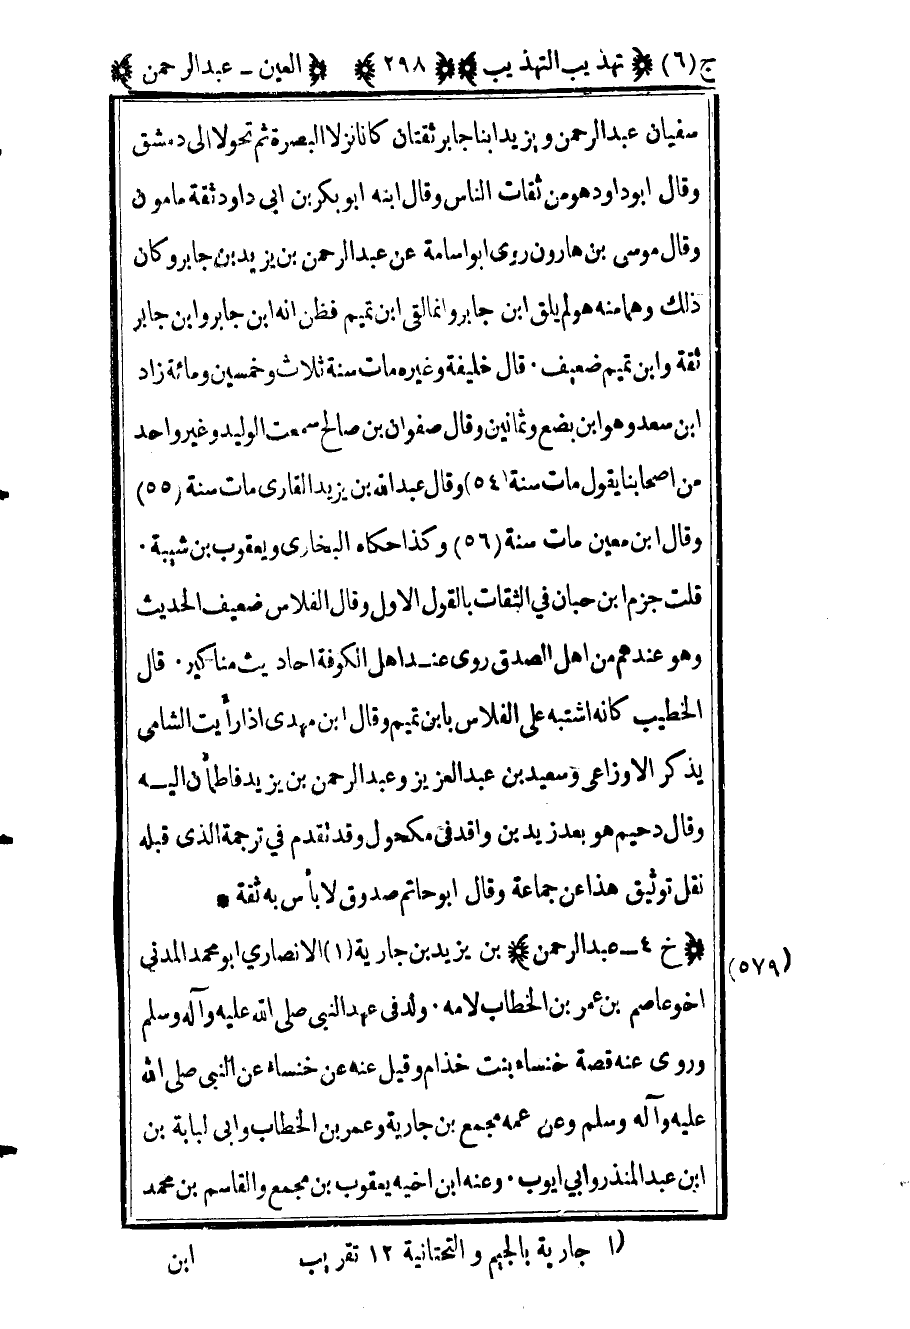 ج(٦) ﴿ تهذيب التهذيب ﴾ ﴿ ٢٩٨ ﴾ ﴿ العين - عبدالرحمن ﴾
سفيان عبدالرحمن ويزيد ابنا جابر ثقتان كانا نزلا البصرة ثم تحولا الى دمشق
وقال ابو داود هو من ثقات الناس وقال ابنه ابو بكر بن ابى داود ثقة مامون
وقال موسى بن هارون روى ابو اسامة عن عبدالرحمن بن يزيد بن جابر وكان
ذلك وهما منه هو لم يلق ابن جابر وانما لقى ابن تميم فظن انه ابن جابر وابن جابر
ثقة وابن تميم ضعيف ٠ قال خليفة وغيره مات سنة ثلاث وخمسين ومائة زاد
ابن سعد وهو ابن بضع وثمانين وقال صفوان بن صالح سمعت الوليد وغير واحد
من اصحابنا يقول مات سنة (٥٤) وقال عبدالله بن يزيد القارى مات سنة (٥٥)
وقال ابن معين مات سنة (٥٦) وكذا حكاه البخارى ويعقوب بن شيبة ٠
قلت جزم ابن حبان في الثقات بالقول الاول وقال الفلاس ضعيف الحديث
وهو عندهم من اهل الصدق روى عنه اهل الكوفة احاديث مناكير ٠ قال
الخطيب كانه اشتبه على الفلاس بابن تميم وقال ابن مهدى اذا رأيت الشامى
يذكر الاوزاعى وسعيد بن عبد العزيز وعبد الرحمن بن يزيد فاطمأن اليه
وقال دحيم هو بعد زيد بن واقد فى مكحول وقد تقدم في ترجمة الذى قبله
نقل توثيق هذا عن جماعة وقال ابو حاتم صدوق لا بأس به ثقة *
﴿ خ ٤ - عبدالرحمن ﴾ بن يزيد بن جارية (١) الانصاري ابو محمد المدنى (٥٧٩)
اخو عاصم بن عمر بن الخطاب لامه ٠ ولد فى عهد النبى صلى الله عليه وآله وسلم
وروى عنه قصة خنساء بنت خذام وقيل عنه عن خنساء عن النبى صلى الله
عليه وآله وسلم وعن عمه مجمع بن جارية وعمر بن الخطاب وابى لبابة بن
ابن عبد المنذر وابي ايوب ٠ وعنه ابن اخيه يعقوب بن مجمع والقاسم بن محمد
(١ جارية بالجيم و التحتانية ١٢ تقريب
ابن